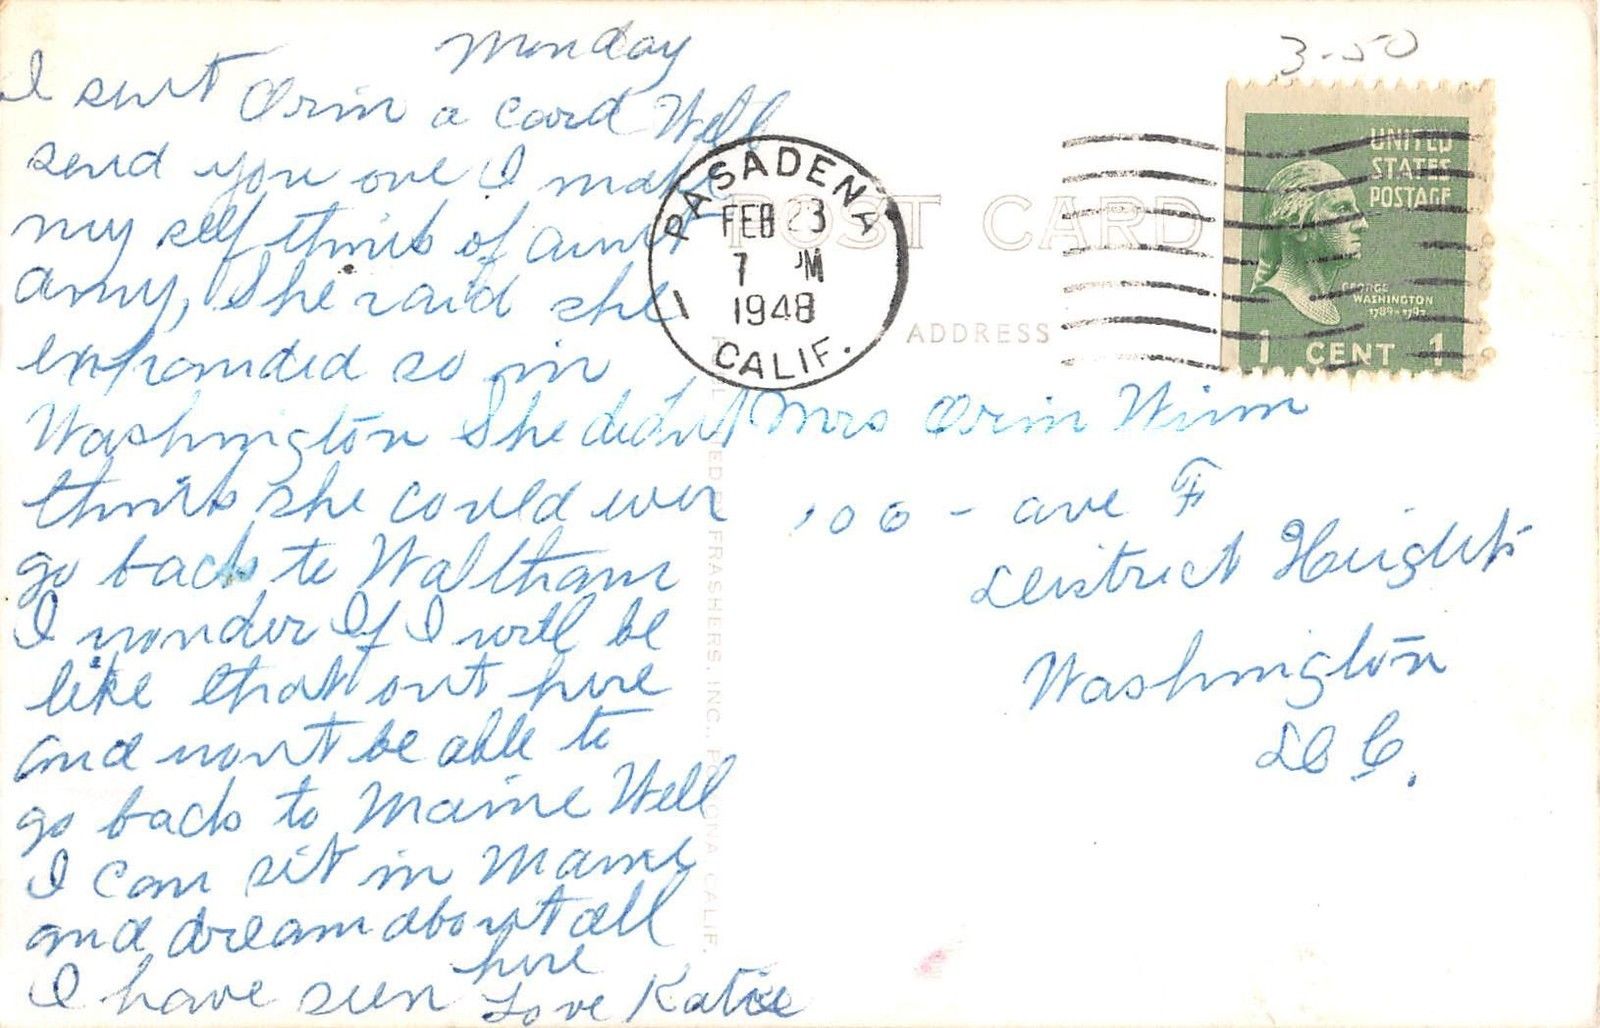 Monday
I sent Orin a card Will
send you one I make
my self think of aunt
Amy, She said she
expanded so in
Washington She didn't
think she could ever
go back to Waltham
I wonder If I will be
like that out here
and won't be able to
go back to Maine Well
I can sit in Maine
and dream about all
I have seen here
Love Katie
3-50
PASADENA
FEB 23
7 PM
1948
CALIF.
1
POST CARD
ADDRESS
UNITED
STATES
POSTAGE
GEORGE
WASHINGTON
1789-1797
1 CENT 1
Mrs Orin Winn
100 - ave F
District Heights
Washington
D C.
FRASHERS, INC., POMONA, CALIF.